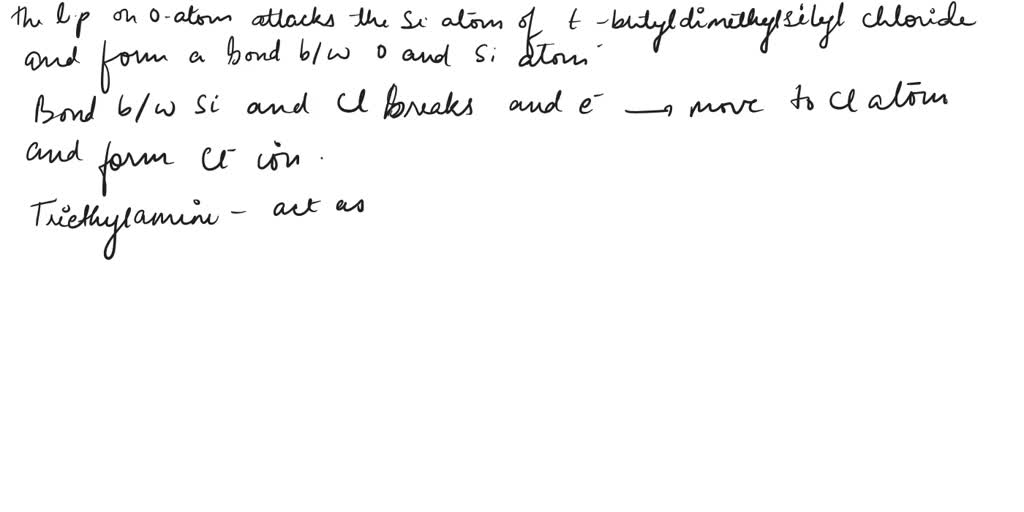 The lp on O-atom attacks the Si atom of t-butyldimethylsilyl chloride
and form a bond b/w O and Si atom.
Bond b/w Si and Cl breaks and e⁻ → move to Cl atom
and form Cl⁻ ion.
Triethylamine - act as